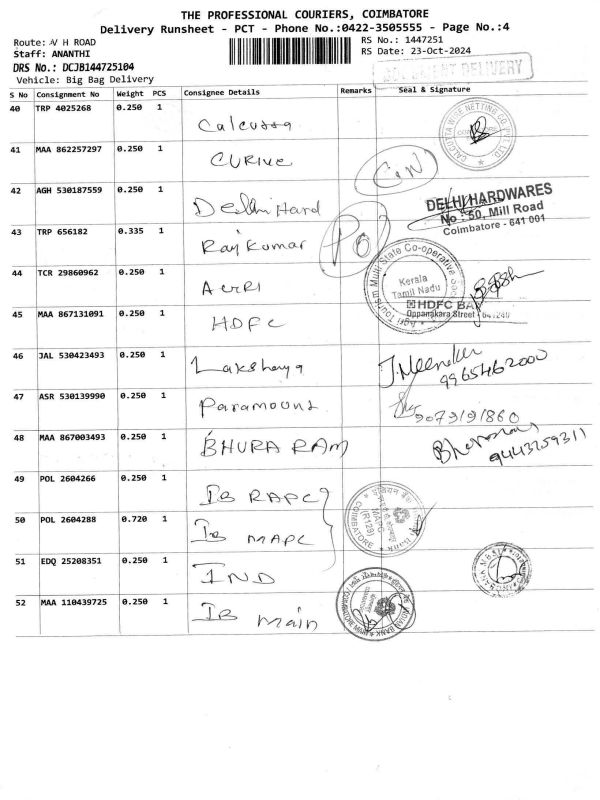 THE PROFESSIONAL COURIERS, COIMBATORE
Delivery Runsheet - PCT - Phone No.:0422-3505555 - Page No.:4
Route: V H ROAD
RS No.: 1447251
Staff: ANANTHI
RS Date: 23-Oct-2024
DRS No.: DCJB144725104
Vehicle: Big Bag Delivery
DELIVERY
S No Consignment No Weight PCS Consignee Details Remarks Seal & Signature
40 TRP 4025268 0.250 1 Calcutta
41 MAA 862257297 0.250 1 CURIVE
42 AGH 530187559 0.250 1 Delhi Hard
DELHI HARDWARES
No : 50, Mill Road
Coimbatore - 641 001
43 TRP 656182 0.335 1 Raj Kumar
44 TCR 29860962 0.250 1
Kerala
Tamil Nadu
45 MAA 867131091 0.250 1 HDFC
HDFC BA
Oppanakara Street
46 JAL 530423493 0.250 1 Lakshaya J. Meenaku
9965462000
47 ASR 530139990 0.250 1 Paramount
9073191860
48 MAA 867003493 0.250 1 BHURA RAM
9443259311
49 POL 2604266 0.250 1 IB RAPC
50 POL 2604288 0.720 1 IB MAPC
COIMBATORE
51 EDQ 25208351 0.250 1 IND
52 MAA 110439725 0.250 1 IB main